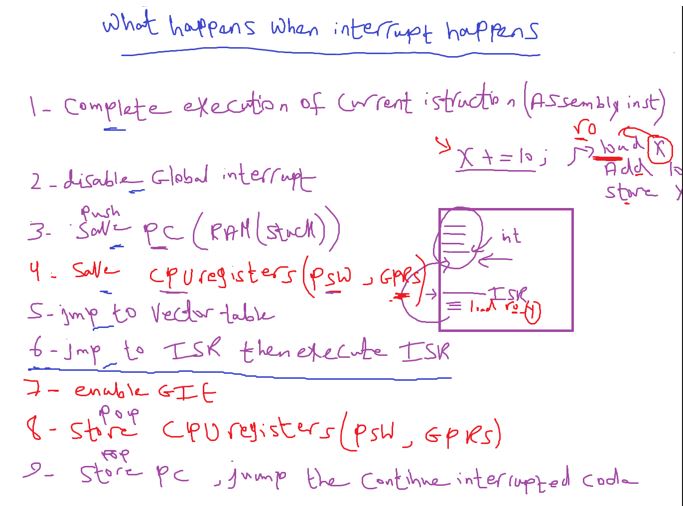 what happens when interrupt happens
1- Complete execution of current istruction (Assembly inst)
r0
X += 10 ; load X
Add 10
store X
2- disable Global interrupt
push
3- Save PC (RAM (stack))
int
4- Save CPU registers (PSW , GPRS)
ISR
load r0 - y
5- jmp to Vector table
6- jmp to ISR then execute ISR
7- enable GIE
pop
8- store CPU registers (PSW , GPRS)
pop
9- store PC , jump the continue interrupted code